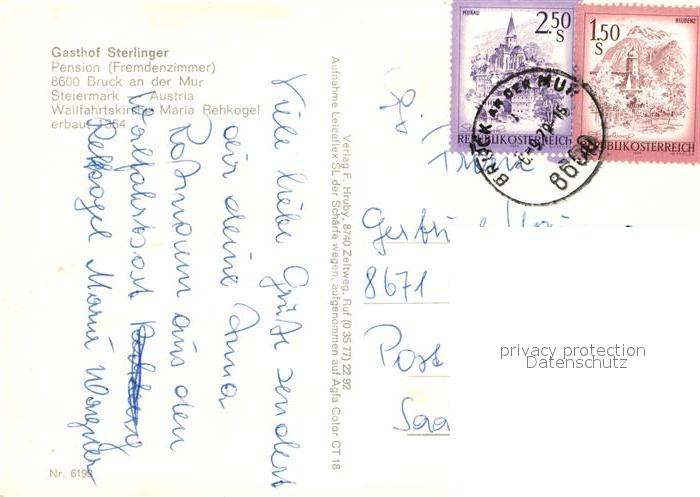 Gasthof Sterlinger
Pension (Fremdenzimmer)
8600 Bruck an der Mur
Steiermark - Austria
Wallfahrtskirche Maria Rehkogel
erbaut 1354
Viele liebe Grüße sendet
dir deine Anna
aus den
Wallfahrtsort
Rehkogel Maria Wagner
Nr. 6193
Verlag F. Hruby, 8740 Zeltweg, Ruf (0 35 77) 22 92
Aufnahme Leicaflex SL der Schärfe wegen, aufgenommen auf Agfa Color CT 18
MURAU
2.50 S
REPUBLIK ÖSTERREICH
BLUDENZ
1.50 S
REPUBLIK ÖSTERREICH
BRUCK AN DER MUR
8600
8671
Post
Saa
privacy protection
Datenschutz